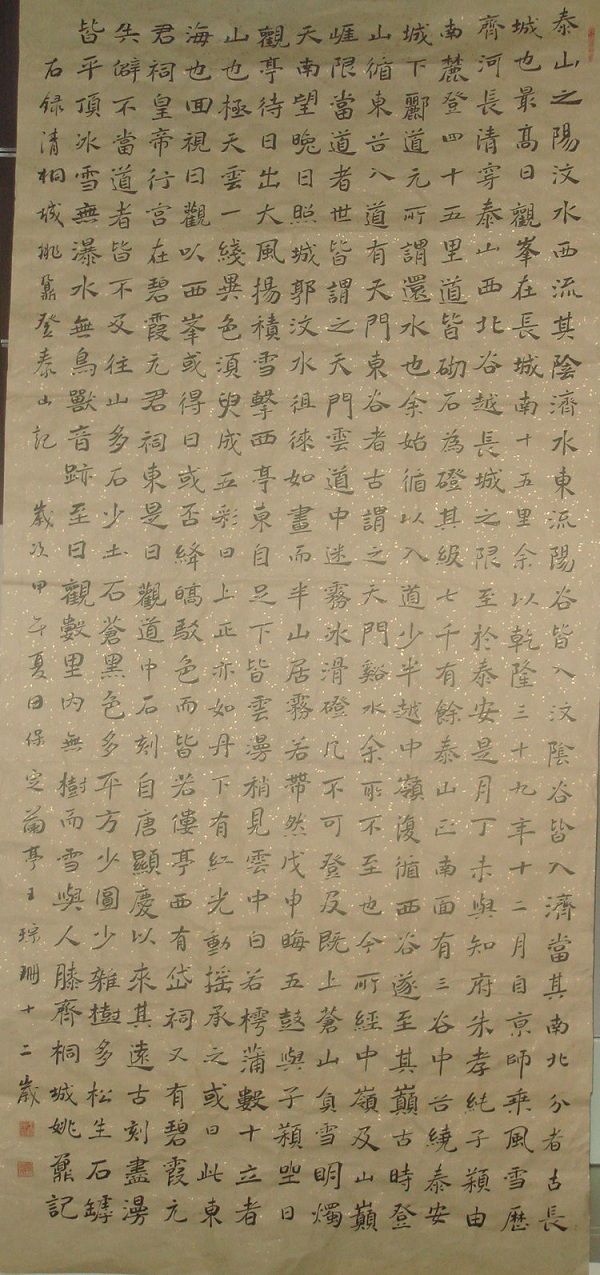 泰山之陽汶水西流其陰濟水東流陽谷皆入汶陰谷皆入濟當其南北分者古長
城也最高日觀峯在長城南十五里余以乾隆三十九年十二月自京師乘風雪歷
齊河長清穿泰山西北谷越長城之限至於泰安是月丁未與知府朱孝純子潁由
南麓登四十五里道皆砌石為磴其級七千有餘泰山正南面有三谷中谷繞泰安
城下酈道元所謂還水也余始循以入道少半越中嶺復循西谷遂至其巔古時登
山循東谷入道有天門東谷者古謂之天門谿水余所不至也今所經中嶺及山巔
崖限當道者世皆謂之天門雲道中迷霧冰滑磴几不可登及既上蒼山負雪明燭
天南望晚日照城郭汶水徂徠如畫而半山居霧若帶然戊申晦五鼓與子潁坐日
觀亭待日出大風揚積雪擊西亭東自足下皆雲漫稍見雲中白若樗蒲數十立者
山也極天雲一綫異色須臾成五彩日上正亦如丹下有紅光動搖承之或曰此東
海也回視日觀以西峯或得日或否絳皜駁色而皆若僂亭西有岱祠又有碧霞元
君祠皇帝行宮在碧霞元君祠東是日觀道中石刻自唐顯慶以來其遠古刻盡漫
失僻不當道者皆不及往山多石少土石蒼黑色多平方少圓少雜樹多松生石罅
皆平頂冰雪無瀑水無鳥獸音跡至日觀數里內無樹而雪與人膝齊桐城姚鼐記
右錄清桐城姚鼐登泰山記 歲次甲午夏日保定蘭亭王琮珊十二歲